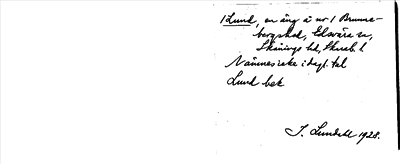 1 Lund, en äng å nr 1 Brunne-
bergshed, Edsvära sn,
Skånings hd, Skarab. l
Männes icke i dagl. tal
Lund bek
J. Lundahl 1928.